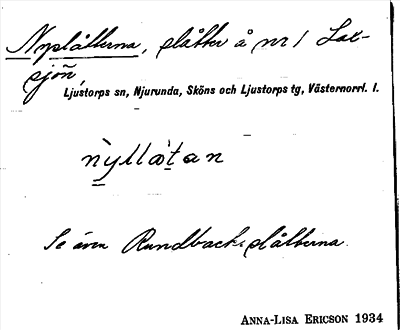 Nyslåtterna, slåtter å nr 1 Lax-
sjön,
Ljustorps sn, Njurunda, Sköns och Ljustorps tg, Västernorrl. l.
nyllatan
Se även Rundbackslåtterna.
ANNA-LISA ERICSON 1934